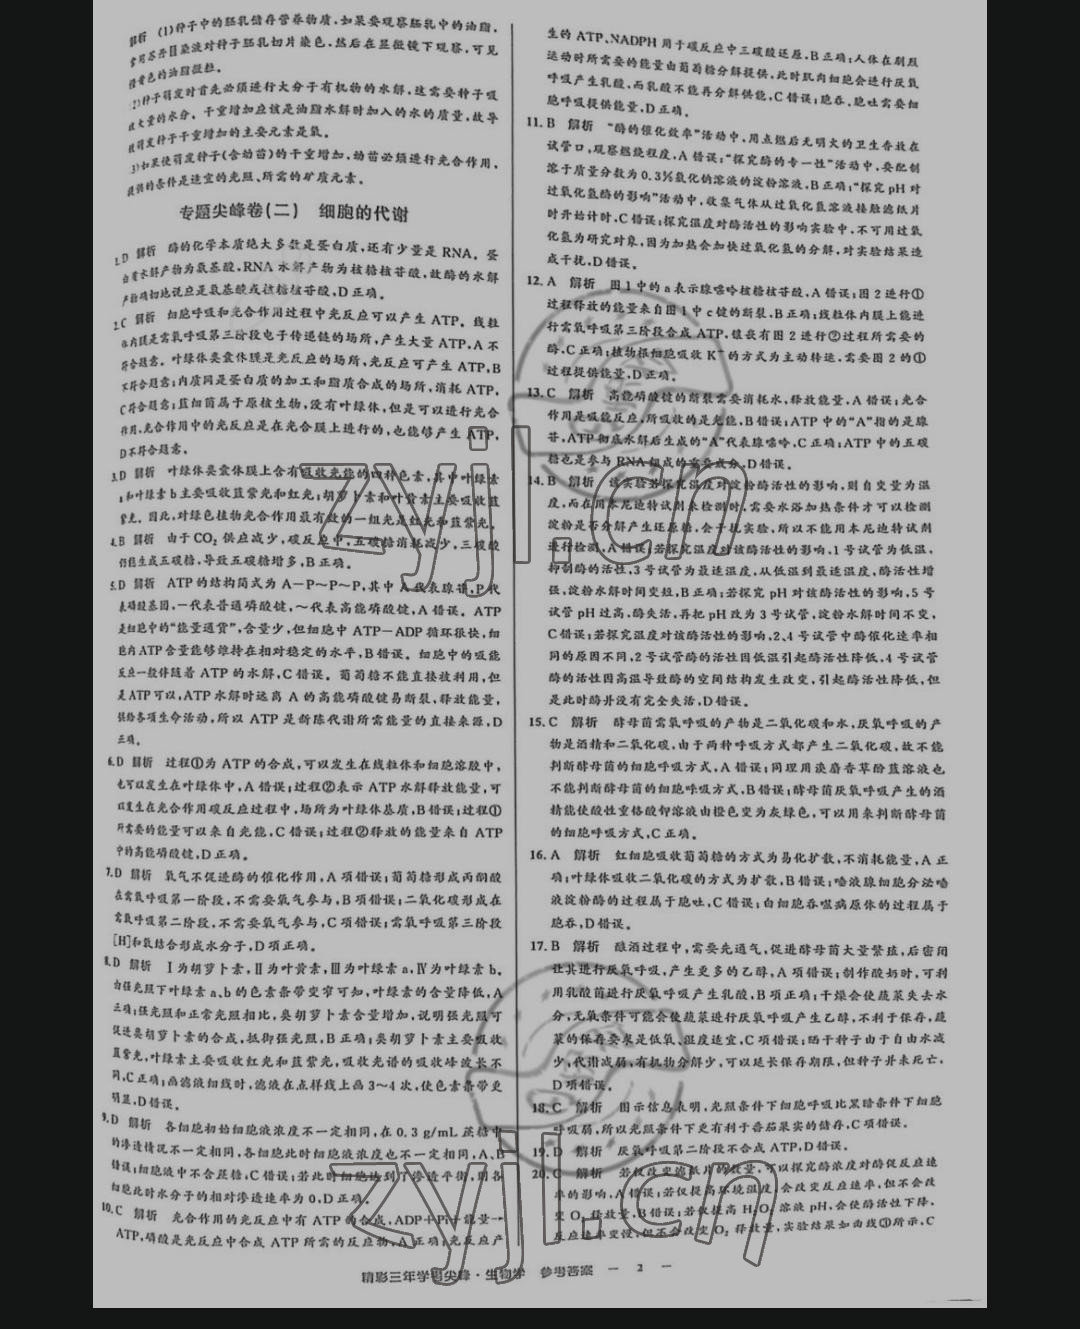 解析 (1)种子中的胚乳储存营养物质,如果要观察胚乳中的油脂,
常用苏丹Ⅲ染液对种子胚乳切片染色,然后在显微镜下观察,可见
橙黄色的油脂微粒。
(2)种子萌发时首先必须进行大分子有机物的水解,这需要种子吸
收大量的水分。干重增加应该是油脂水解时加入的水的质量,故导
致萌发种子干重增加的主要元素是氧。
(3)如果使萌发种子(含幼苗)的干重增加,幼苗必须进行光合作用,
提供的条件是适宜的光照、所需的矿质元素。
专题尖峰卷(二) 细胞的代谢
1.D 解析 酶的化学本质绝大多数是蛋白质,还有少量是 RNA。蛋
白质水解产物为氨基酸,RNA 水解产物为核糖核苷酸,故酶的水解
产物确切地说应是氨基酸或核糖核苷酸,D 正确。
2.C 解析 细胞呼吸和光合作用过程中光反应可以产生 ATP。线粒
体内膜是需氧呼吸第三阶段电子传递链的场所,产生大量 ATP,A 不
符合题意。叶绿体类囊体膜是光反应的场所,光反应可产生 ATP,B
不符合题意;内质网是蛋白质的加工和脂质合成的场所,消耗 ATP,
C符合题意;蓝细菌属于原核生物,没有叶绿体,但是可以进行光合
作用,光合作用中的光反应是在光合膜上进行的,也能够产生 ATP,
D不符合题意。
3.D 解析 叶绿体类囊体膜上含有吸收光能的四种色素,其中叶绿素
a和叶绿素 b 主要吸收蓝紫光和红光;胡萝卜素和叶黄素主要吸收蓝
紫光。因此,对绿色植物光合作用最有效的一组光是红光和蓝紫光。
4.B 解析 由于 CO₂ 供应减少,碳反应中,五碳糖消耗减少,三碳酸
仍能生成五碳糖,导致五碳糖增多,B 正确。
5.D 解析 ATP 的结构简式为 A—P~P~P,其中 A 代表腺苷,P 代
表磷酸基团,—代表普通磷酸键,~代表高能磷酸键,A 错误。ATP
是细胞中的“能量通货”,含量少,但细胞中 ATP—ADP 循环很快,细
胞内 ATP 含量能够维持在相对稳定的水平,B 错误。细胞中的吸能
反应一般伴随着 ATP 的水解,C 错误。葡萄糖不能直接被利用,但
是ATP可以,ATP 水解时远离 A 的高能磷酸键易断裂,释放能量,
供给各项生命活动,所以 ATP 是新陈代谢所需能量的直接来源,D
正确。
6.D 解析 过程①为 ATP 的合成,可以发生在线粒体和细胞溶胶中,
也可以发生在叶绿体中,A 错误;过程②表示 ATP 水解释放能量,可
以发生在光合作用碳反应过程中,场所为叶绿体基质,B 错误;过程①
所需要的能量可以来自光能,C 错误;过程②释放的能量来自 ATP
中的高能磷酸键,D 正确。
7.D 解析 氧气不促进酶的催化作用,A 项错误;葡萄糖形成丙酮酸
在需氧呼吸第一阶段,不需要氧气参与,B 项错误;二氧化碳形成在
需氧呼吸第二阶段,不需要氧气参与,C 项错误;需氧呼吸第三阶段
[H]和氧结合形成水分子,D 项正确。
8.D 解析 Ⅰ为胡萝卜素,Ⅱ为叶黄素,Ⅲ为叶绿素 a,Ⅳ为叶绿素 b。
由强光照下叶绿素 a、b 的色素条带变窄可知,叶绿素的含量降低,A
正确;强光照和正常光照相比,类胡萝卜素含量增加,说明强光照可
促进类胡萝卜素的合成,抵御强光照,B 正确;类胡萝卜素主要吸收
蓝紫光,叶绿素主要吸收红光和蓝紫光,吸收光谱的吸收峰波长不
同,C 正确;画滤液细线时,滤液在点样线上画 3~4 次,使色素条带更
明显,D 错误。
9.D 解析 各细胞初始细胞液浓度不一定相同,在 0.3 g/mL 蔗糖中
的渗透情况不一定相同,各细胞此时细胞液浓度也不一定相同,A、B
错误;细胞液中不含蔗糖,C 错误;若此时细胞达到了渗透平衡,则各
细胞此时水分子的相对渗透速率为 0,D 正确。
10.C 解析 光合作用的光反应中有 ATP 的合成,ADP+Pi+能量→
ATP,磷酸是光反应中合成 ATP 所需的反应物,A 正确;光反应产
生的 ATP、NADPH 用于碳反应中三碳酸还原,B 正确;人体在剧烈
运动时所需要的能量由葡萄糖分解提供,此时肌肉细胞会进行厌氧
呼吸产生乳酸,而乳酸不能再分解供能,C 错误;胞吞、胞吐需要细
胞呼吸提供能量,D 正确。
11.B 解析 “酶的催化效率”活动中,用点燃后无明火的卫生香放在
试管口,观察燃烧程度,A 错误;“探究酶的专一性”活动中,要配制
溶于质量分数为 0.3%氯化钠溶液的淀粉溶液,B 正确;“探究 pH 对
过氧化氢酶的影响”活动中,收集气体从过氧化氢溶液接触滤纸片
时开始计时,C 错误;探究温度对酶活性的影响实验中,不可用过氧
化氢为研究对象,因为加热会加快过氧化氢的分解,对实验结果造
成干扰,D 错误。
12.A 解析 图 1 中的 a 表示腺嘌呤核糖核苷酸,A 错误;图 2 进行①
过程释放的能量来自图 1 中 c 键的断裂,B 正确;线粒体内膜上能进
行需氧呼吸第三阶段合成 ATP,镶嵌有图 2 进行②过程所需要的
酶,C 正确;植物根细胞吸收 K⁺ 的方式为主动转运,需要图 2 的①
过程提供能量,D 正确。
13.C 解析 高能磷酸键的断裂需要消耗水,释放能量,A 错误;光合
作用是吸能反应,所吸收的是光能,B 错误;ATP 中的“A”指的是腺
苷,ATP 彻底水解后生成的“A”代表腺嘌呤,C 正确;ATP 中的五碳
糖也是参与 RNA 组成的重要成分,D 错误。
14.B 解析 该实验若探究温度对淀粉酶活性的影响,则自变量为温
度,而在用本尼迪特试剂来检测时,需要水浴加热条件才可以检测
淀粉是否分解产生还原糖,会干扰实验,所以不能用本尼迪特试剂
进行检测,A 错误;若探究温度对该酶活性的影响,1 号试管为低温,
抑制酶的活性,3 号试管为最适温度,从低温到最适温度,酶活性增
强,淀粉水解时间变短,B 正确;若探究 pH 对该酶活性的影响,5 号
试管 pH 过高,酶失活,再把 pH 改为 3 号试管,淀粉水解时间不变,
C 错误;若探究温度对该酶活性的影响,2、4 号试管中酶催化速率相
同的原因不同,2 号试管酶的活性因低温引起酶活性降低,4 号试管
酶的活性因高温导致酶的空间结构发生改变,引起酶活性降低,但
是此时酶并没有完全失活,D 错误。
15.C 解析 酵母菌需氧呼吸的产物是二氧化碳和水,厌氧呼吸的产
物是酒精和二氧化碳,由于两种呼吸方式都产生二氧化碳,故不能
判断酵母菌的细胞呼吸方式,A 错误;同理用溴麝香草酚蓝溶液也
不能判断酵母菌的细胞呼吸方式,B 错误;酵母菌厌氧呼吸产生的酒
精能使酸性重铬酸钾溶液由橙色变为灰绿色,可以用来判断酵母菌
的细胞呼吸方式,C 正确。
16.A 解析 红细胞吸收葡萄糖的方式为易化扩散,不消耗能量,A 正
确;叶绿体吸收二氧化碳的方式为扩散,B 错误;唾液腺细胞分泌唾
液淀粉酶的过程属于胞吐,C 错误;白细胞吞噬病原体的过程属于
胞吞,D 错误。
17.B 解析 酿酒过程中,需要先通气,促进酵母菌大量繁殖,后密闭
让其进行厌氧呼吸,产生更多的乙醇,A 项错误;制作酸奶时,可利
用乳酸菌进行厌氧呼吸产生乳酸,B 项正确;干燥会使蔬菜失去水
分,无氧条件可能会使蔬菜进行厌氧呼吸产生乙醇,不利于保存,蔬
菜的保存要求是低氧、湿度适宜,C 项错误;晒干种子由于自由水减
少,代谢减弱,有机物分解少,可以延长保存期限,但种子并未死亡,
D 项错误。
18.C 解析 图示信息表明,光照条件下细胞呼吸比黑暗条件下细胞
呼吸弱,所以光照条件下更有利于番茄果实的储存,C 项错误。
19.D 解析 厌氧呼吸第二阶段不合成 ATP,D 错误。
20.C 解析 若仅改变滤纸片的数量,可以探究酶浓度对酶促反应速
率的影响,A 错误;若仅提高环境温度,会改变反应速率,但不会改
变 O₂ 释放量,B 错误;若仅提高 H₂O₂ 溶液 pH,会使酶活性下降,
反应速率变慢,但不会改变 O₂ 释放量,实验结果如曲线③所示,C
精彩三年学考尖峰·生物学 参考答案 — 2 —
zyjl.cn
zyjl.cn